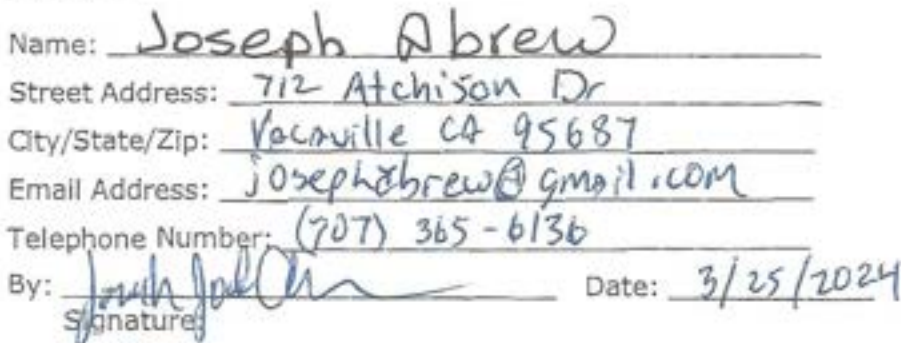 Name: Joseph Abrew
Street Address: 712 Atchison Dr
City/State/Zip: Vacaville CA 95687
Email Address: josephabrew@gmail.com
Telephone Number: (707) 365-6136
By: Date: 3/25/2024
Signature